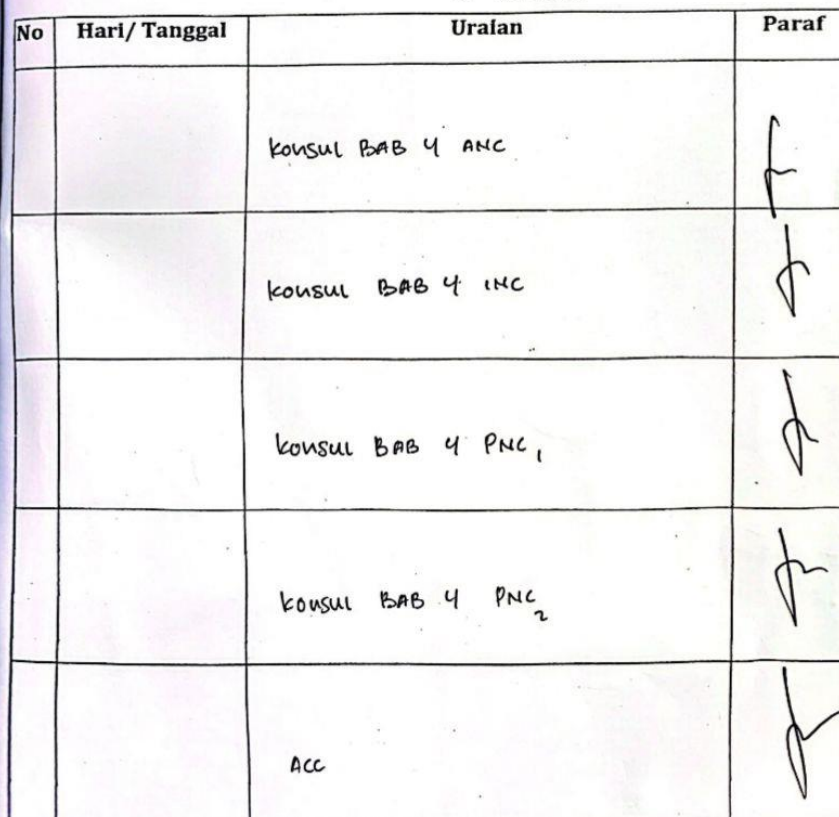 No Hari/ Tanggal Uraian Paraf
konsul BAB 4 ANC
konsul BAB 4 INC
konsul BAB 4 PNC1
konsul BAB 4 PNC2
ACC